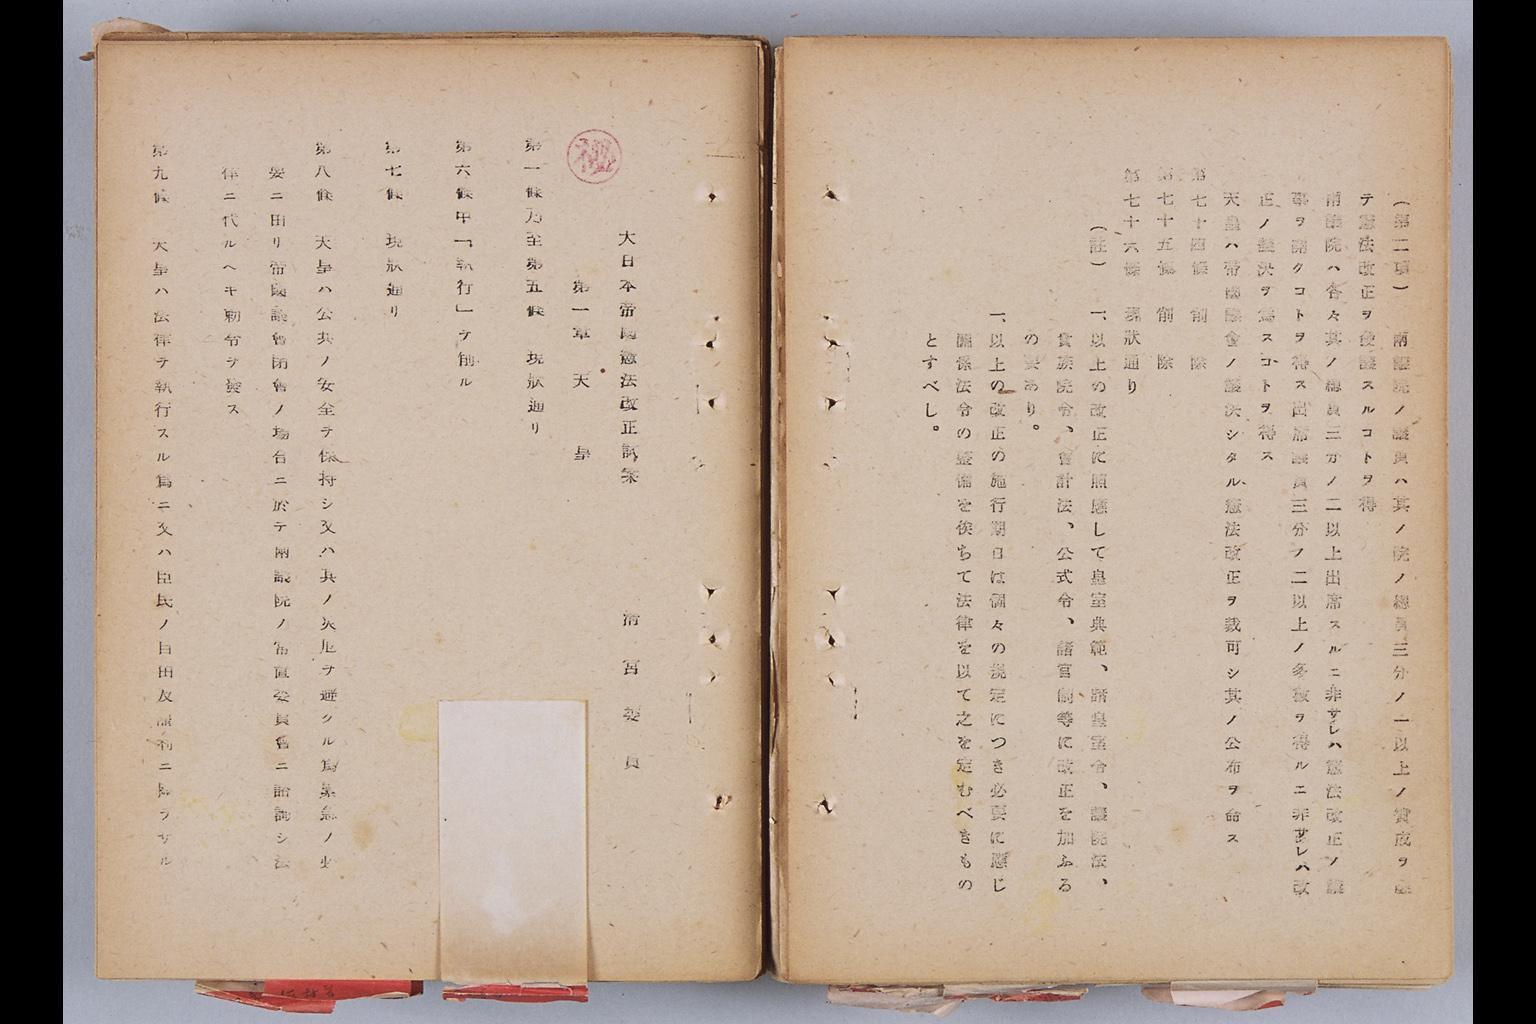 （第二項）　兩議院ノ議員ハ其ノ院ノ總員三分ノ一以上ノ賛成ヲ
テ憲法改正ヲ發議スルコトヲ得
兩議院ハ各々其ノ總員三分ノ二以上出席スルニ非サレハ憲法改正ノ議
事ヲ開クコトヲ得ス出席議員三分ノ二以上ノ多數ヲ得ルニ非サレハ改
正ノ議決ヲ爲スコトヲ得ス
天皇ハ帝國議會ノ議決シタル憲法改正ヲ裁可シ其ノ公布ヲ命ス
第七十四條　削　除
第七十五條　削　除
第七十六條　現狀通り
（註）　一、以上の改正に照應して皇室典範、諸皇室令、議院法、
貴族院令、會計法、公式令、諸官制等に改正を加ふる
の要あり。
一、以上の改正の施行期日は個々の規定につき必要に應じ
關係法令の整備を俟ちて法律を以て之を定むべきもの
とすべし。
大日本帝國憲法改正試案
清宮委員
秘
第一章　天　皇
第一條乃至第五條　現狀通リ
第六條中「執行」ヲ削ル
第七條　現狀通リ
第八條　天皇ハ公共ノ安全ヲ保持シ又ハ其ノ災厄ヲ避クル爲緊急ノ必
要ニ由リ帝國議會閉會ノ場合ニ於テ兩議院ノ常置委員會ニ諮詢シ法
律ニ代ルヘキ勅令ヲ發ス
第九條　天皇ハ法律ヲ執行スル爲ニ又ハ臣民ノ自由及權利ニ關ラサル